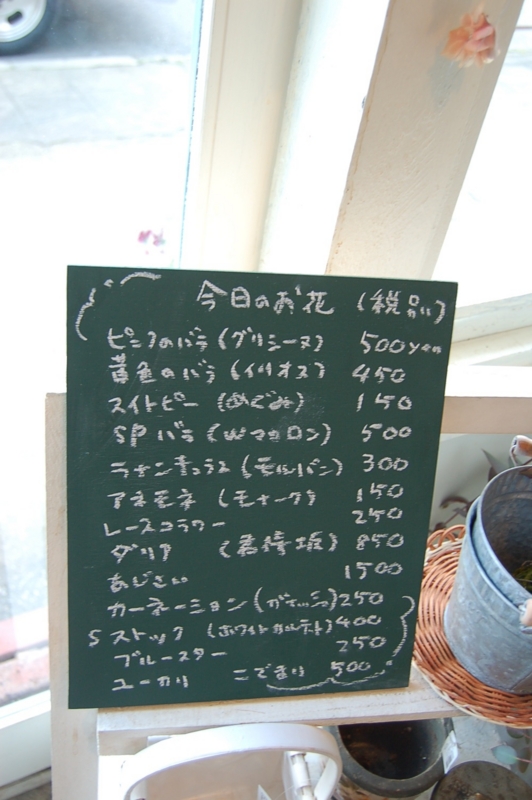 今日のお花 (税別)
ピンクのバラ (グリシーヌ) 500yen
黄色のバラ (イリオス) 450
スイトピー (めぐみ) 150
SPバラ (Wマカロン) 500
ラナンキュラス (モルバン) 300
アネモネ (モナーク) 150
レースフラワー 250
ダリア (君待坂) 850
あじさい 1500
カーネーション 250
Sストック (ホワイトカルテト) 400
ブルースター 250
ユーカリ こでまり 500